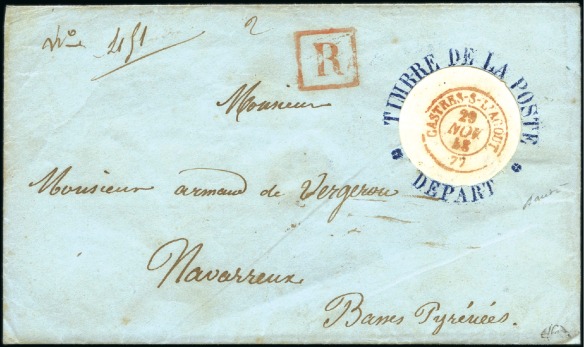 N° 451
2
R
Monsieur
TIMBRE DE LA POSTE
CASTRES-S-L'AGOUT
29
NOV.
77
* DEPART *
Monsieur armand de Vergeron
Navarreux
Basses Pyrénées.